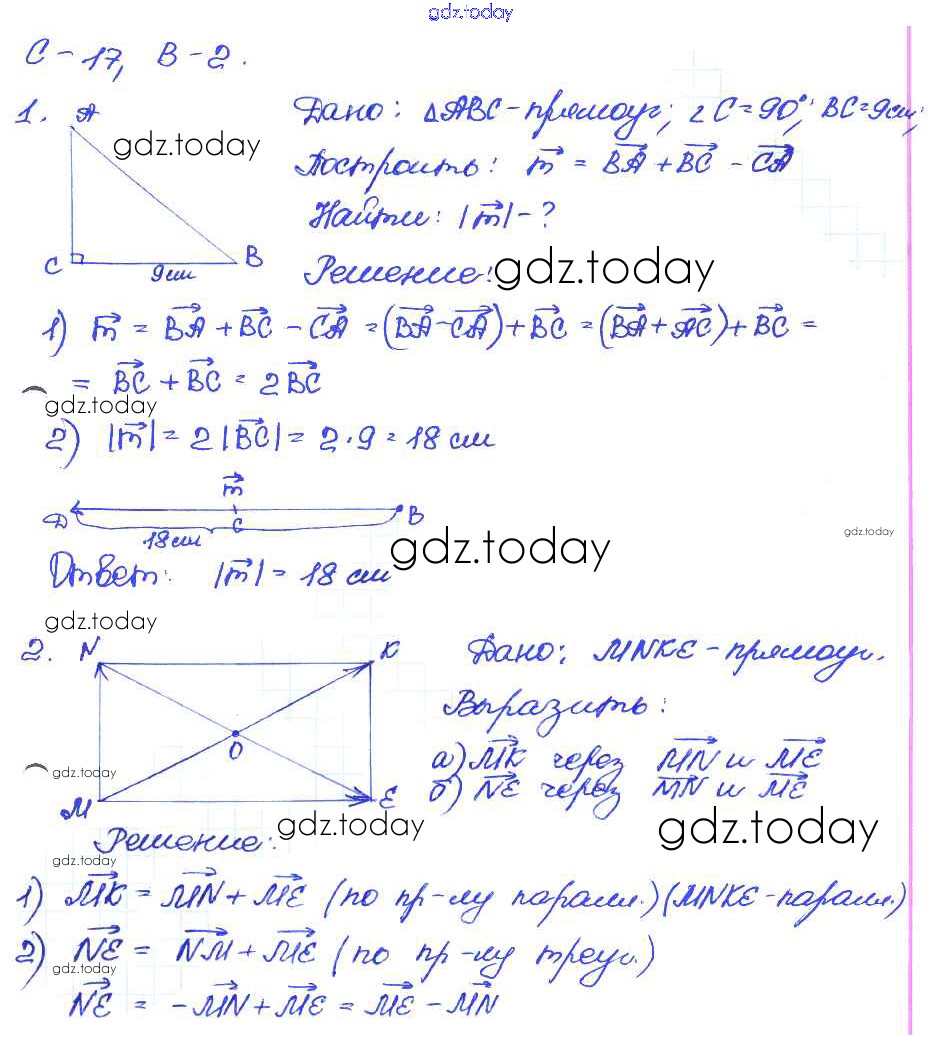 gdz.today
С-17, В-2.
1. A
Дано: △ABC-прямоуг; ∠C=90°; BC=9см;
gdz.today
Построить: m⃗ = BA⃗ + BC⃗ - CA⃗
Найти: |m⃗|-?
C 9см B
Решение: gdz.today
1) m⃗ = BA⃗ + BC⃗ - CA⃗ = (BA⃗ - CA⃗) + BC⃗ = (BA⃗ + AC⃗) + BC⃗ =
= BC⃗ + BC⃗ = 2BC⃗
gdz.today
2) |m⃗| = 2|BC⃗| = 2·9 = 18 см
m⃗
D C B
18см
gdz.today
gdz.today
Ответ: |m⃗| = 18 см
gdz.today
2. N K
Дано: MNKE-прямоуг.
Выразить:
O
а) MK⃗ через MN⃗ и ME⃗
gdz.today
б) NE⃗ через MN⃗ и ME⃗
M E
gdz.today
gdz.today
Решение:
gdz.today
1) MK⃗ = MN⃗ + ME⃗ (по пр-лу паралл.) (MNKE-паралл.)
2) NE⃗ = NM⃗ + ME⃗ (по пр-лу треуг.)
gdz.today
NE⃗ = -MN⃗ + ME⃗ = ME⃗ - MN⃗